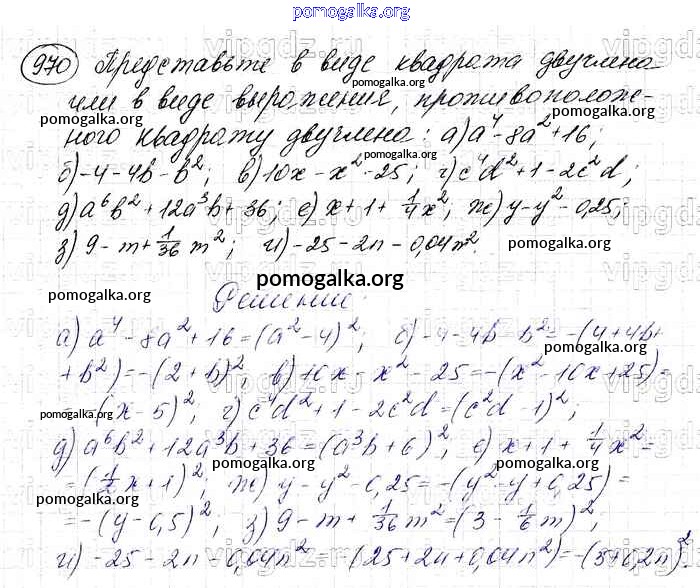 pomogalka.org
970 Представьте в виде квадрата двучлена
или в виде выражения, противополож-
ного квадрату двучлена: а) a⁴-8a²+16;
б) -4-4b-b²; в) 10x-x²-25; г) c⁴d²+1-2c²d;
д) a⁶b²+12a³b+36; е) x+1+1/4x²; ж) y-y²-0,25;
з) 9-m+1/36 m²; и) -25-2n-0,04n².
pomogalka.org
Решение:
а) a⁴-8a²+16=(a²-4)²; б) -4-4b-b²=-(4+4b+
+b²)=-(2+b)²; в) 10x-x²-25=-(x²-10x+25)=
=-(x-5)²; г) c⁴d²+1-2c²d=(c²d-1)²;
д) a⁶b²+12a³b+36=(a³b+6)²; е) x+1+1/4x²=
=(1/2x+1)²; ж) y-y²-0,25=-(y²-y+0,25)=
=-(y-0,5)²; з) 9-m+1/36m²=(3-1/6m)²;
и) -25-2n-0,04n²=-(25+2n+0,04n²)=-(5+0,2n)².